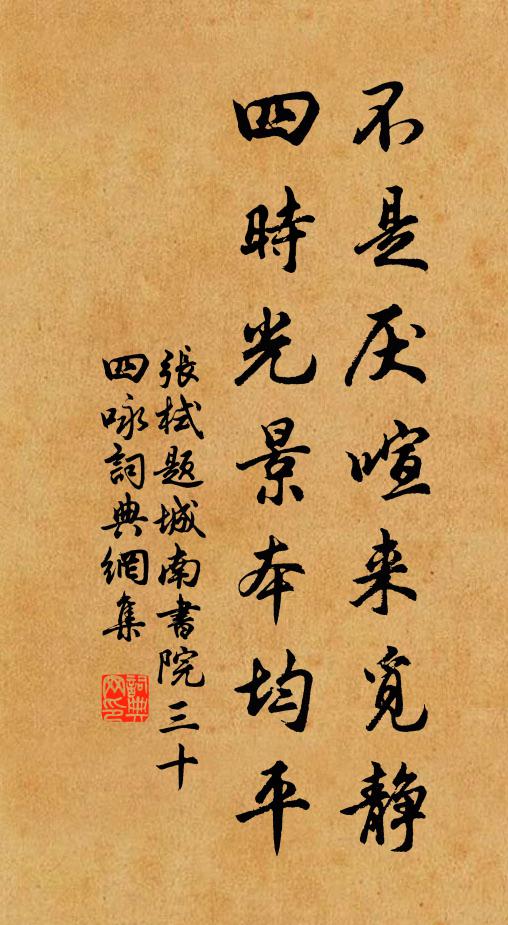 不是厌喧来觅静
四時光景本均平
張栻题城南書院三十
四咏詞典網集
詞典网印